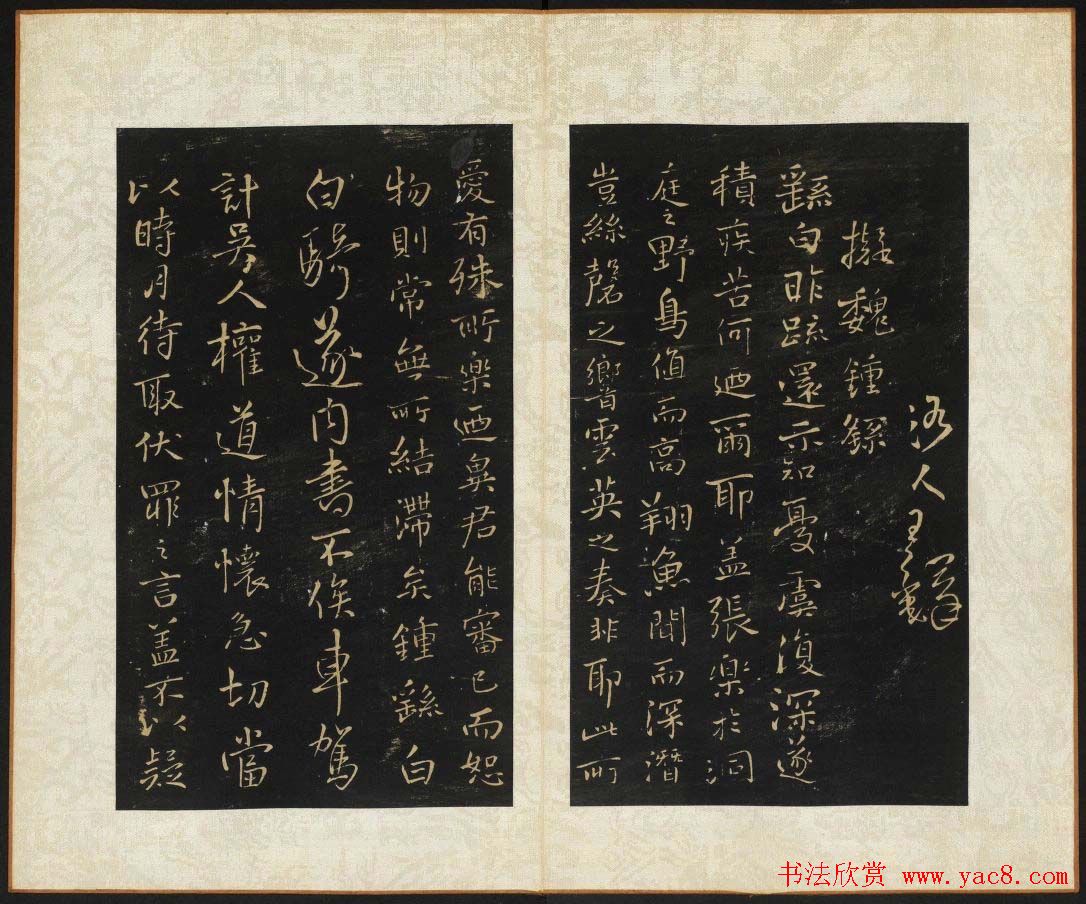 洛人王鐸
擬魏鍾繇
繇白昨疏還示知憂虞復深遂
積疾苦何迺爾耶蓋張樂於洞
庭之野鳥值而高翔漁聞而深潛
豈絲磬之響雲英之奏非耶此所
愛有殊所樂迺異君能審己而恕
物則常無所結滯矣鍾繇白
白騎遂內書不俟車駕
計吳人權道情懷急切當
以時月待取伏罪之言蓋不以疑
书法欣赏 www.yac8.com